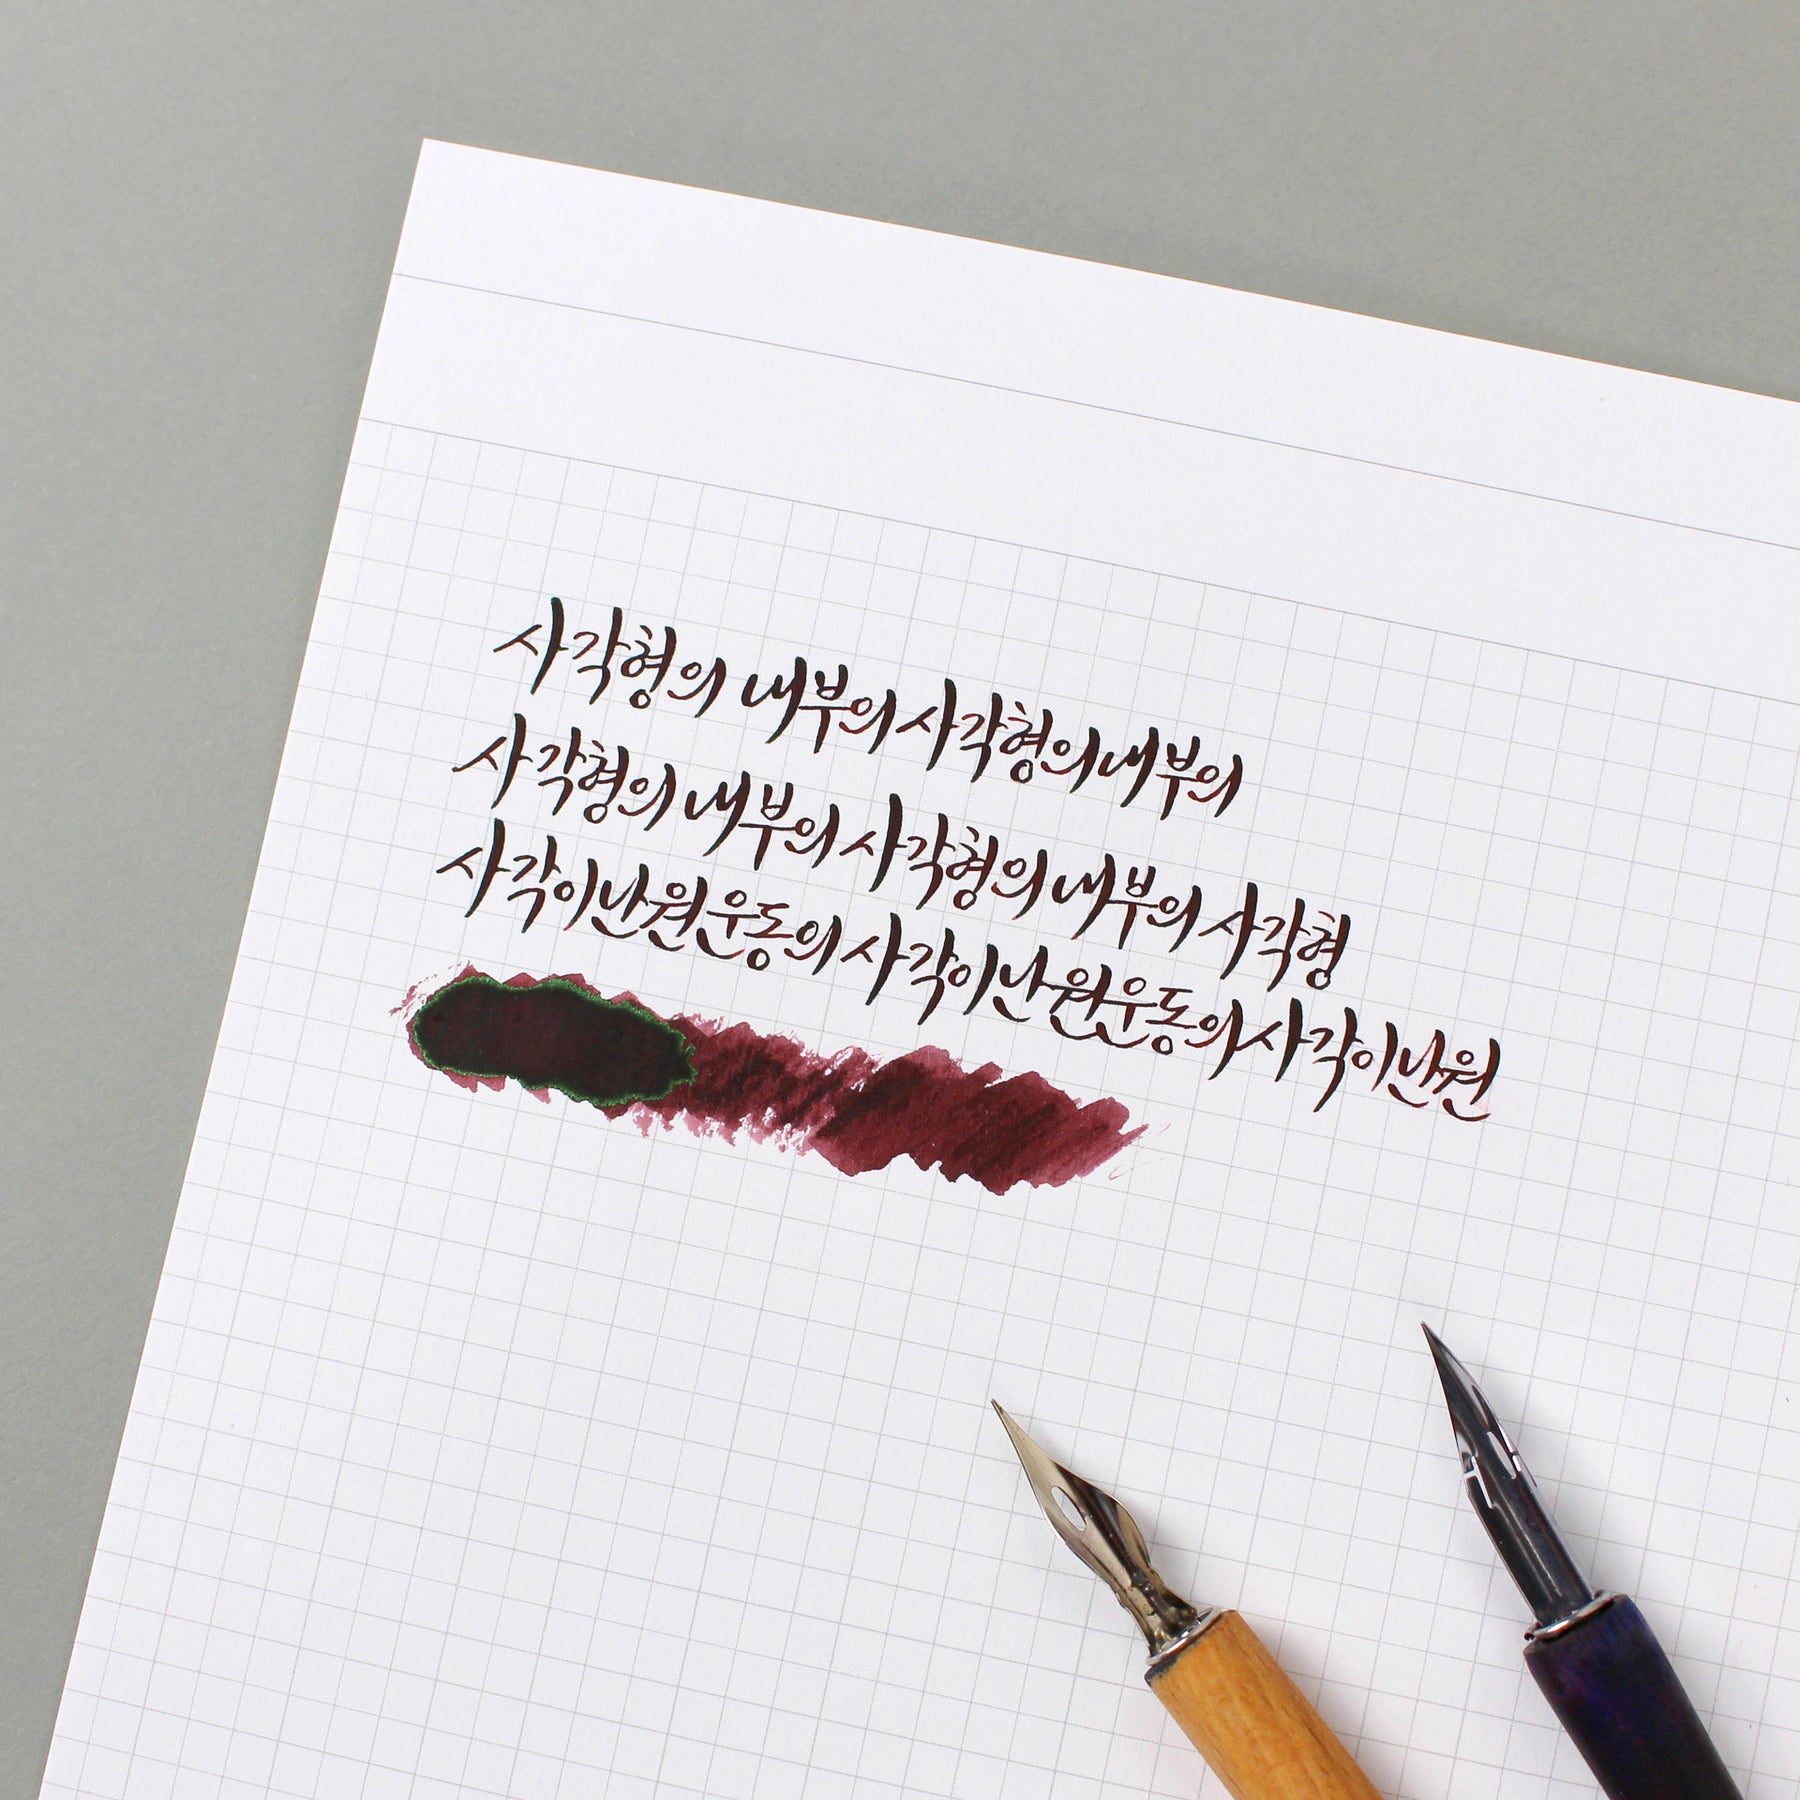 사각형의 내부의 사각형의 내부의
사각형의 내부의 사각형의 내부의 사각형
사각이난원운동의 사각이난원운동의 사각이난원